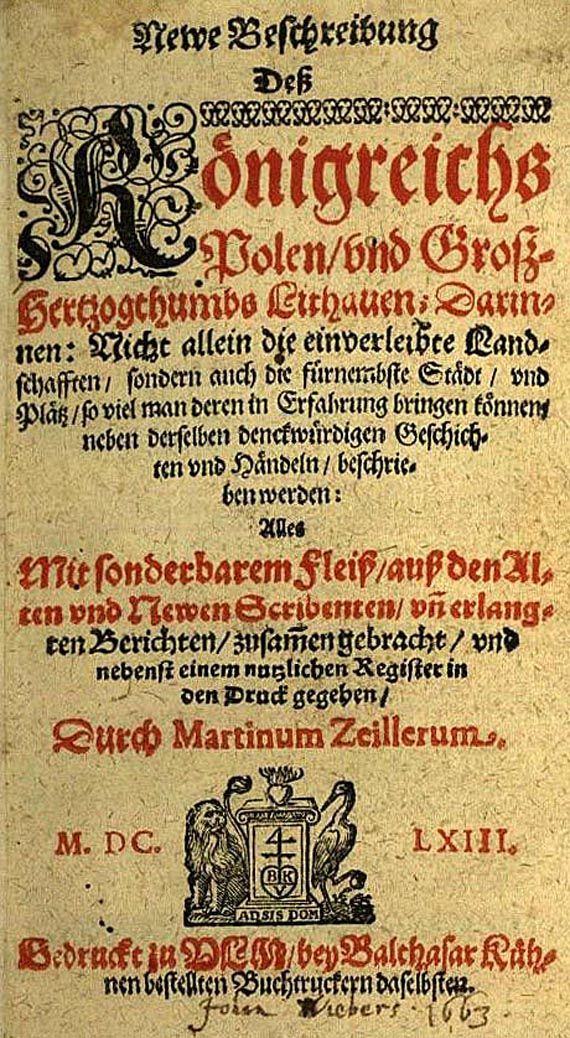 Newe Beschreibung
Deß
Königreichs
Polen/ vnd Groß-
Hertzogthumbs Lithauen: Darin-
nen: Nicht allein die einverleibte Land-
schafften/ sondern auch die fürnembste Städt/ vnd
Plätz/ so viel man deren in Erfahrung bringen können/
neben derselben denckwürdigen Geschich-
ten vnd Händeln/ beschrie-
ben werden:
Alles
Mit sonderbarem Fleiß/ auß den Al-
ten vnd Newen Scribenten/ vñ erlang-
ten Berichten/ zusam̃engebracht/ vnd
nebenst einem nutzlichen Register in
den Druck gegeben/
Durch Martinum Zeillerum.
M. DC. LXIII.
BK
ANSIS DOM
Gedruckt zu VLM/ bey Balthasar Küh-
nen bestellten Buchtruckern daselbsten.
1663